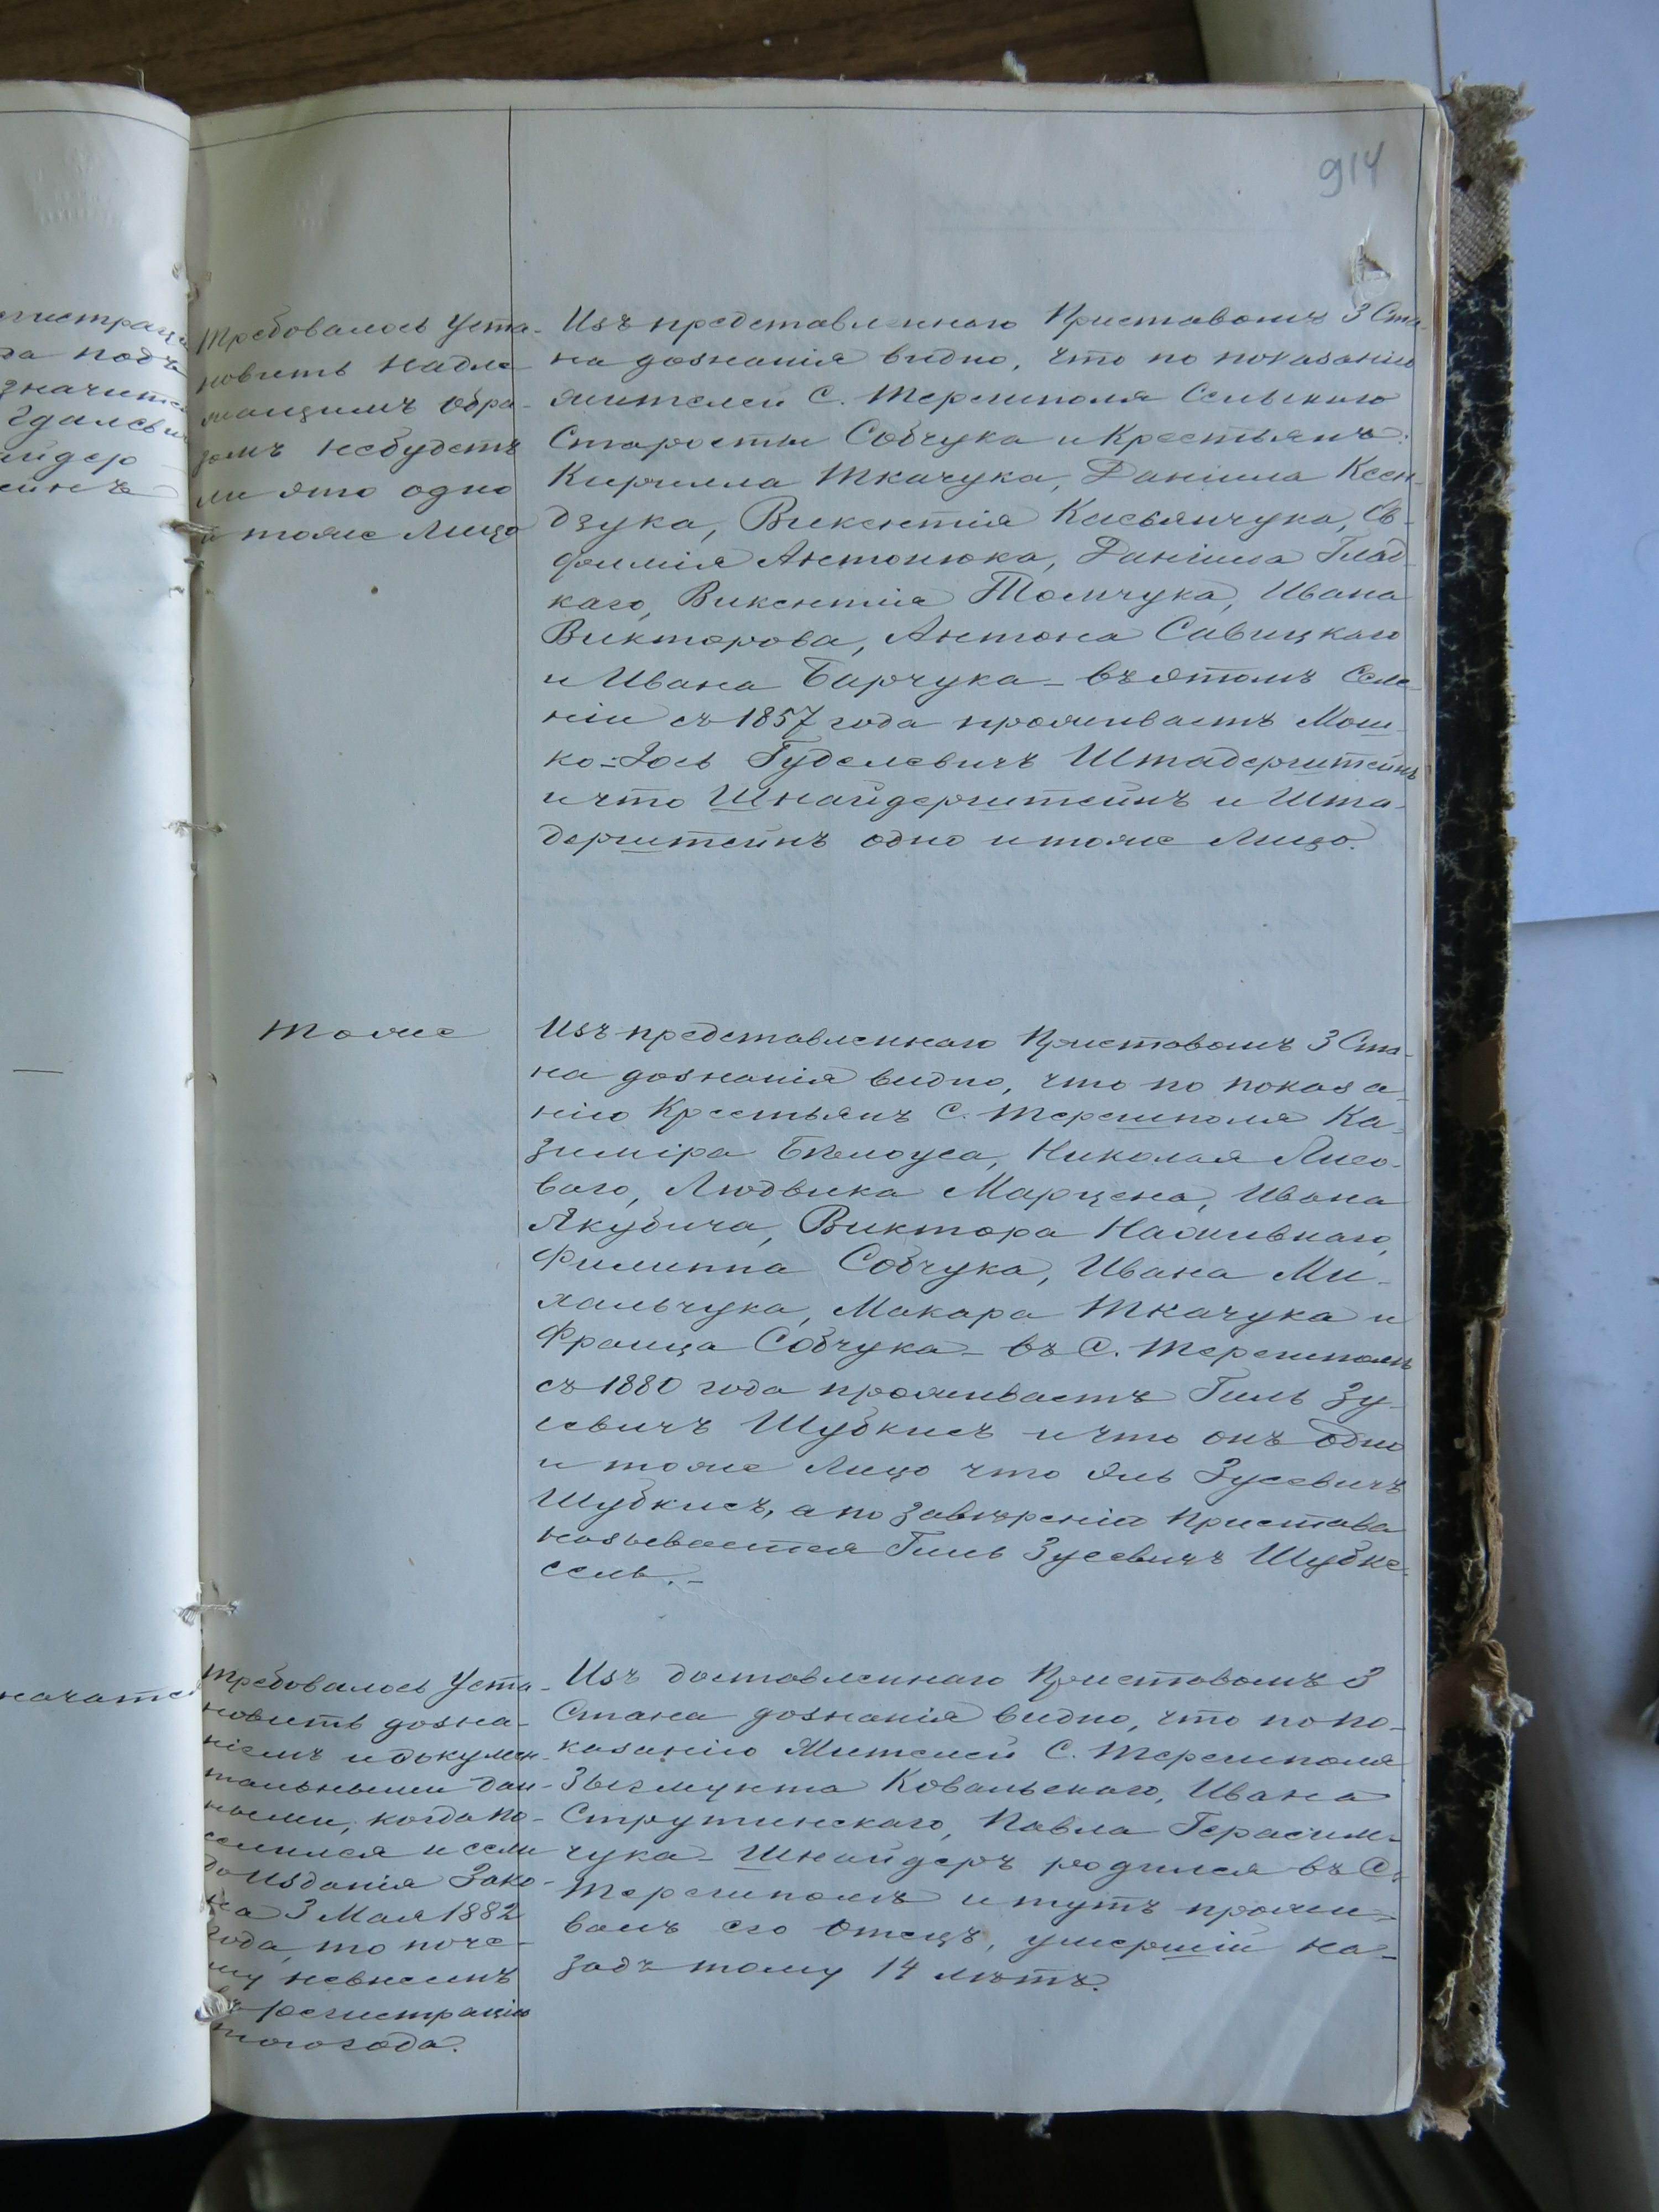 914
гистрац
да подъ
значитс
Гдалев
айдер
ейнъ
Требовалось Уста-
новить надле
жащимъ обра-
зомъ небудетъ
ли это одно
и тоже Лицо
Изъ представленнаго Приставомъ 3 Ста-
на дознанія видно, что по показанію
жителей С. Терешполя Сельскаго
Старосты Собчука и Крестьянъ:
Кирилла Ткачука, Даніила Ксен-
дзука, Викентія Касьянчука, Ев-
фимія Антонюка, Даніила Глад-
каго, Викентія Томчука, Ивана
Викторова, Антона Савицкаго
и Ивана Барчука - въ этомъ Селе-
ніи съ 1857 года проживаетъ Мош-
ко-Іось Гуделевичъ Штадерштейнъ
и что Шнайдерштейнъ и Шта-
дерштейнъ одно и тоже Лицо.
Тоже
Изъ представленнаго Приставомъ 3 Ста-
на дознанія видно, что по показа-
нію Крестьянъ С. Терешполя Ка-
зиміра Бѣлоуса, Николая Лисо-
ваго, Людвика Марцена, Ивана
Якубича, Виктора Наживнаго,
Филиппа Собчука, Ивана Ми-
хальчука, Макара Ткачука и
Франца Собчука - въ С. Терешполѣ
съ 1880 года проживаетъ Гиль Зу-
севичъ Шубкисъ и что онъ одно
и тоже Лицо что Эль Зусевичъ
Шубкисъ, а по завѣренію Пристава
называется Гиль Зусевичъ Шубке-
сель.-
начатс
Требовалось Уста-
новить дозна-
ніемъ и докумен-
тальными дан-
ными, когда по-
селился и если
до изданія Зако-
на 3 Мая 1882
года, то поче-
му невнесенъ
въ регистрацію
того года.
Изъ доставленнаго Приставомъ 3
Стана дознанія видно, что по по-
казанію Жителей С. Терешполя
Зыгмунта Ковальскаго, Ивана
Струтинскаго, Павла Герасим-
чука - Шнайдеръ родился въ С.
Терешполѣ и тутъ прожи-
валъ его Отецъ, умершій на-
задъ тому 14 лѣтъ.